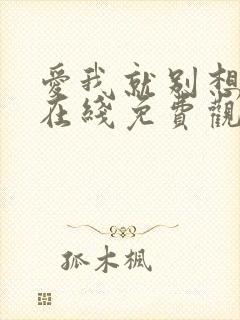 愛我就別想
在綫免費觀
孤木楓